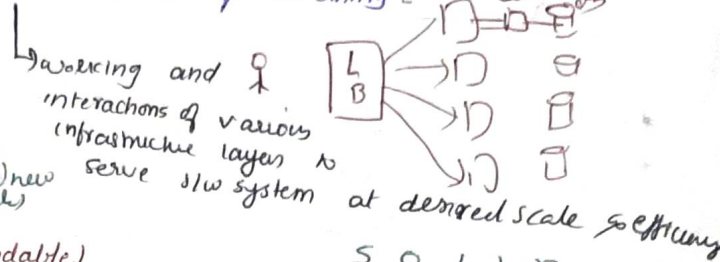 working and
interactions of various
infrastructure layers to
serve s/w system at desired scale & efficiency
L
B
new
dable)